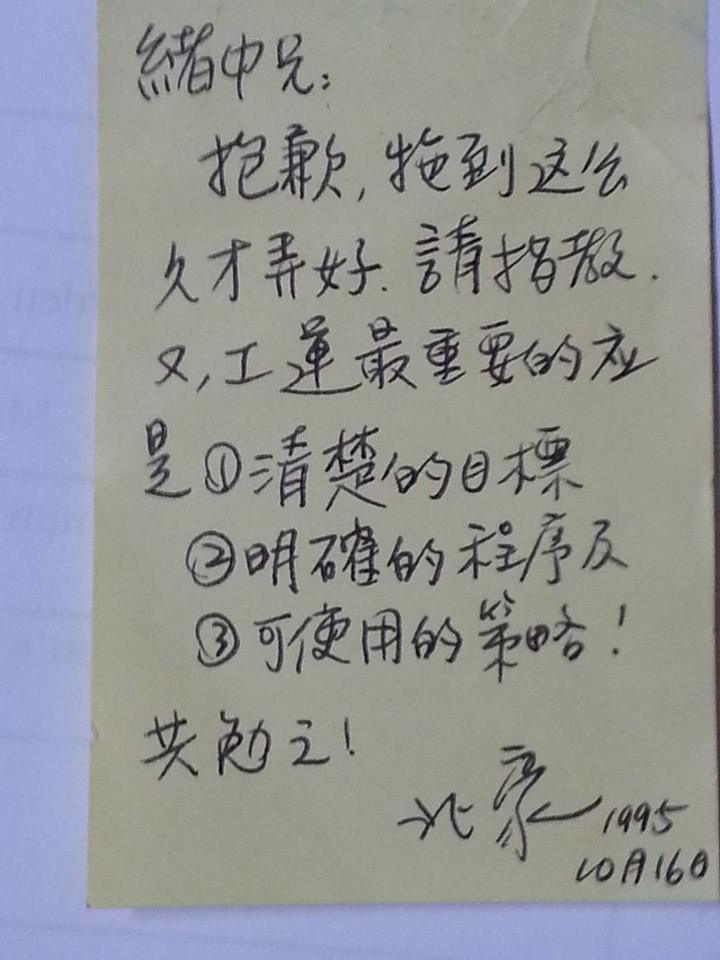 緒中兄：
抱歉，拖到这么
久才弄好．請指教．
又，工運最重要的应
是①清楚的目標
②明確的程序及
③可使用的策略！
共勉之！
北豪 1995
10月16日